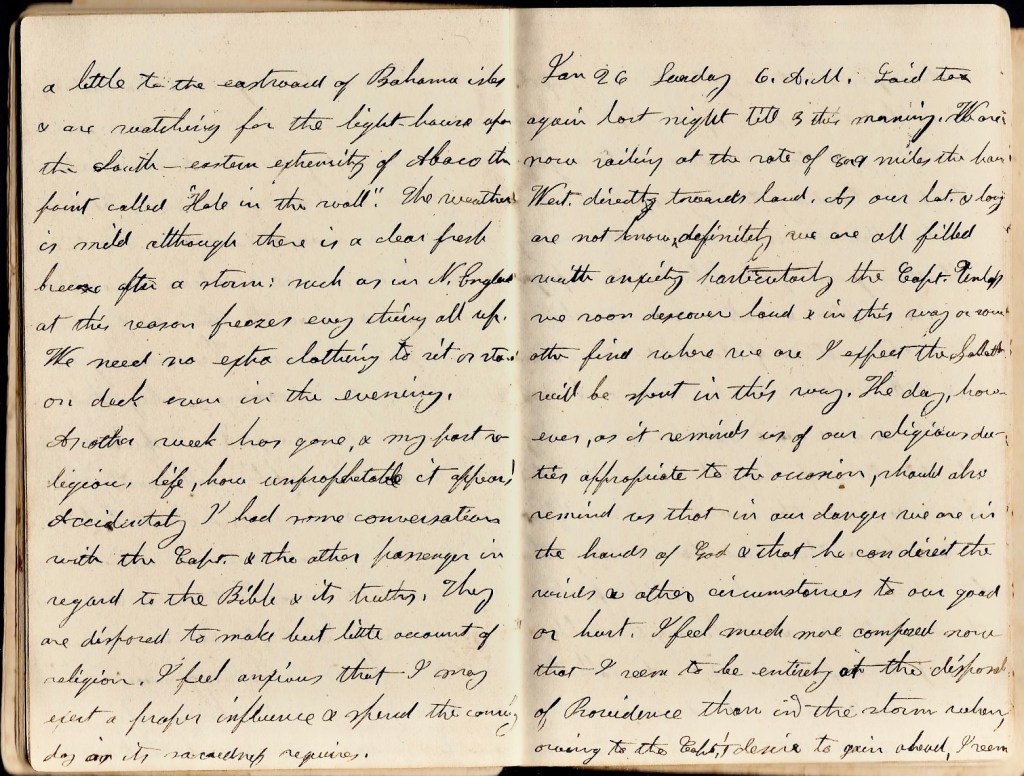 a little to the eastward of Bahama isles
& are watching for the light-house upon
the South-eastern extremity of Abaco the
point called "Hole in the wall". The weather
is mild although there is a clear fresh
breeze after a storm: such as in N. England
at this season freezes every thing all up.
We need no extra clothing to sit or stand
on deck even in the evening.
Another week has gone, & my past re
ligious life, how unprophetable it appears!
Accidentaly I had some conversations
with the Capt. & the other passenger in
regard to the Bible & its truths. They
are disposed to make but little account of
religion. I feel anxious that I may
exert a proper influence & spend the coming
day as its sacredness requires.
Jan 26 Sunday 6. A.M. Laid too
again last night till 3 this morning. We are
now sailing at the rate of 8 or 9 miles the hour
West. directly towards land. As our lat. & long
are not know definitely we are all filled
with anxiety particularly the Capt. Unless
we soon descover land & in this way or some
other find where we are I expect the Sabbath
will be spent in this way. The day, how-
ever, as it reminds us of our religious du-
ties appropriate to the occasion, should also
remind us that in our danger we are in
the hands of God & that he can direct the
winds & other circumstances to our good
or hurt. I feel much more composed now
that I seem to be entirely at the disposal
of Providence than in the storm when,
owing to the Capt,s desire to gain ahead, I seem